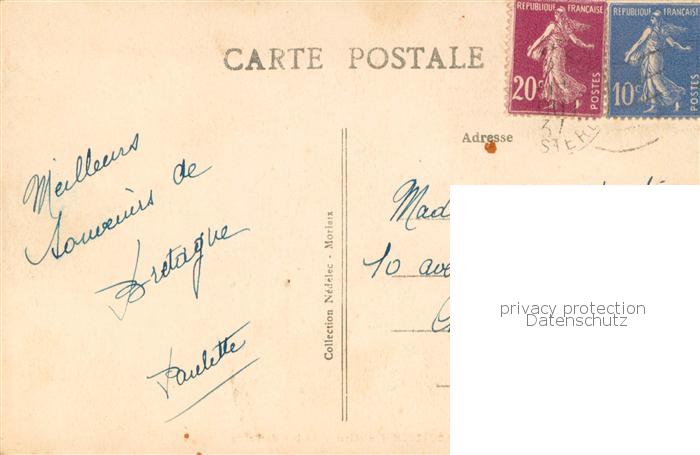 CARTE POSTALE
REPUBLIQUE FRANÇAISE
20c
POSTES
REPUBLIQUE FRANÇAISE
10c
POSTES
37
Adresse
Meilleurs
Souvenirs de
Bretagne
Paulette
Collection Nédelec - Morlaix
Mad
10 ave
privacy protection
Datenschutz